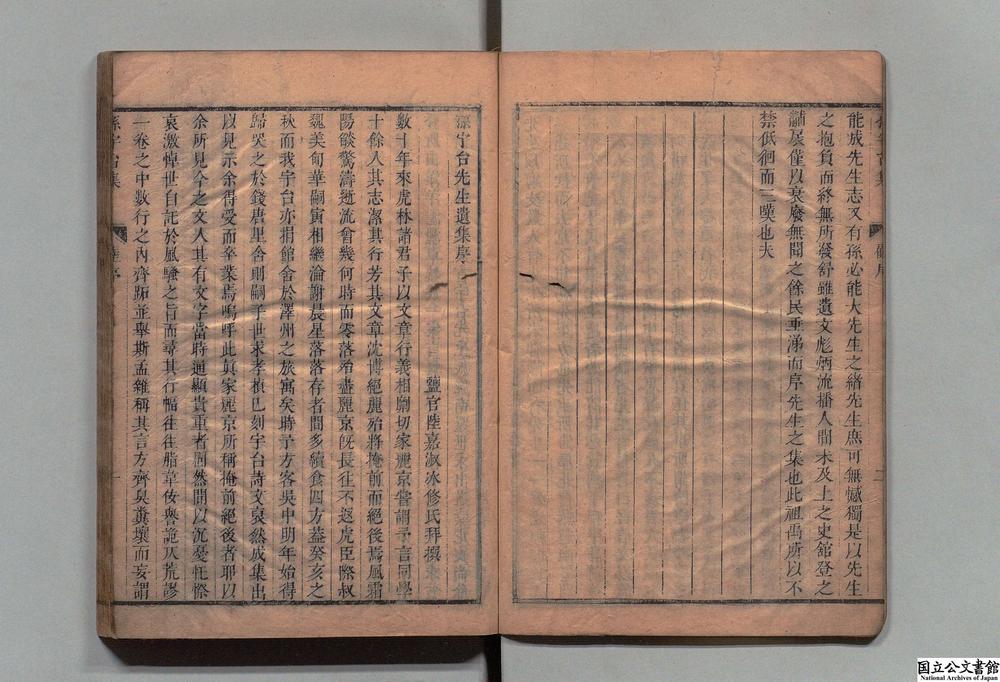 能成先生志又有孫必能大先生之緒先生庶可無憾獨是以先生
之抱負而終無所發舒雖遺文彪炳流播人間未及上之史館登之
黼扆僅以衰廢無聞之餘民垂涕而序先生之集也此祖禹所以不
禁低徊而三嘆也夫
孫宇台先生遺集序
鹽官陸嘉淑冰修氏拜撰
數十年來虎林諸君子以文章行義相劘切家麗京嘗謂予言同學
十餘人其志潔其行芳其文章沈博絕麗殆將掩前而絕後焉風霜
陽燄驚濤逝流曾幾何時而零落殆盡麗京旣長往不返虎臣際叔
魏美甸華嗣寅相繼淪謝晨星落落存者間多續食四方蓋癸亥之
秋而我宇台亦捐館舍於澤州之旅寓矣時予方客吳中明年始得
歸哭之於錢唐里舍則嗣子世求孝楨已刻宇台詩文裒然成集出
以見示余得受而卒業焉嗚呼此眞家麗京所稱掩前絕後者耶以
余所見今之文人其有文字當時通顯貴重者固然間以沉憂怌傺
哀激悼世自託於風騷之旨而尋其行幅往往脂韋侫譽詭仄荒謬
一卷之中數行之內齊跖並舉斯孟雜稱其言方齊臭糞壤而妄謂
孫宇台集
陸序
一
二
国立公文書館
National Archives of Japan